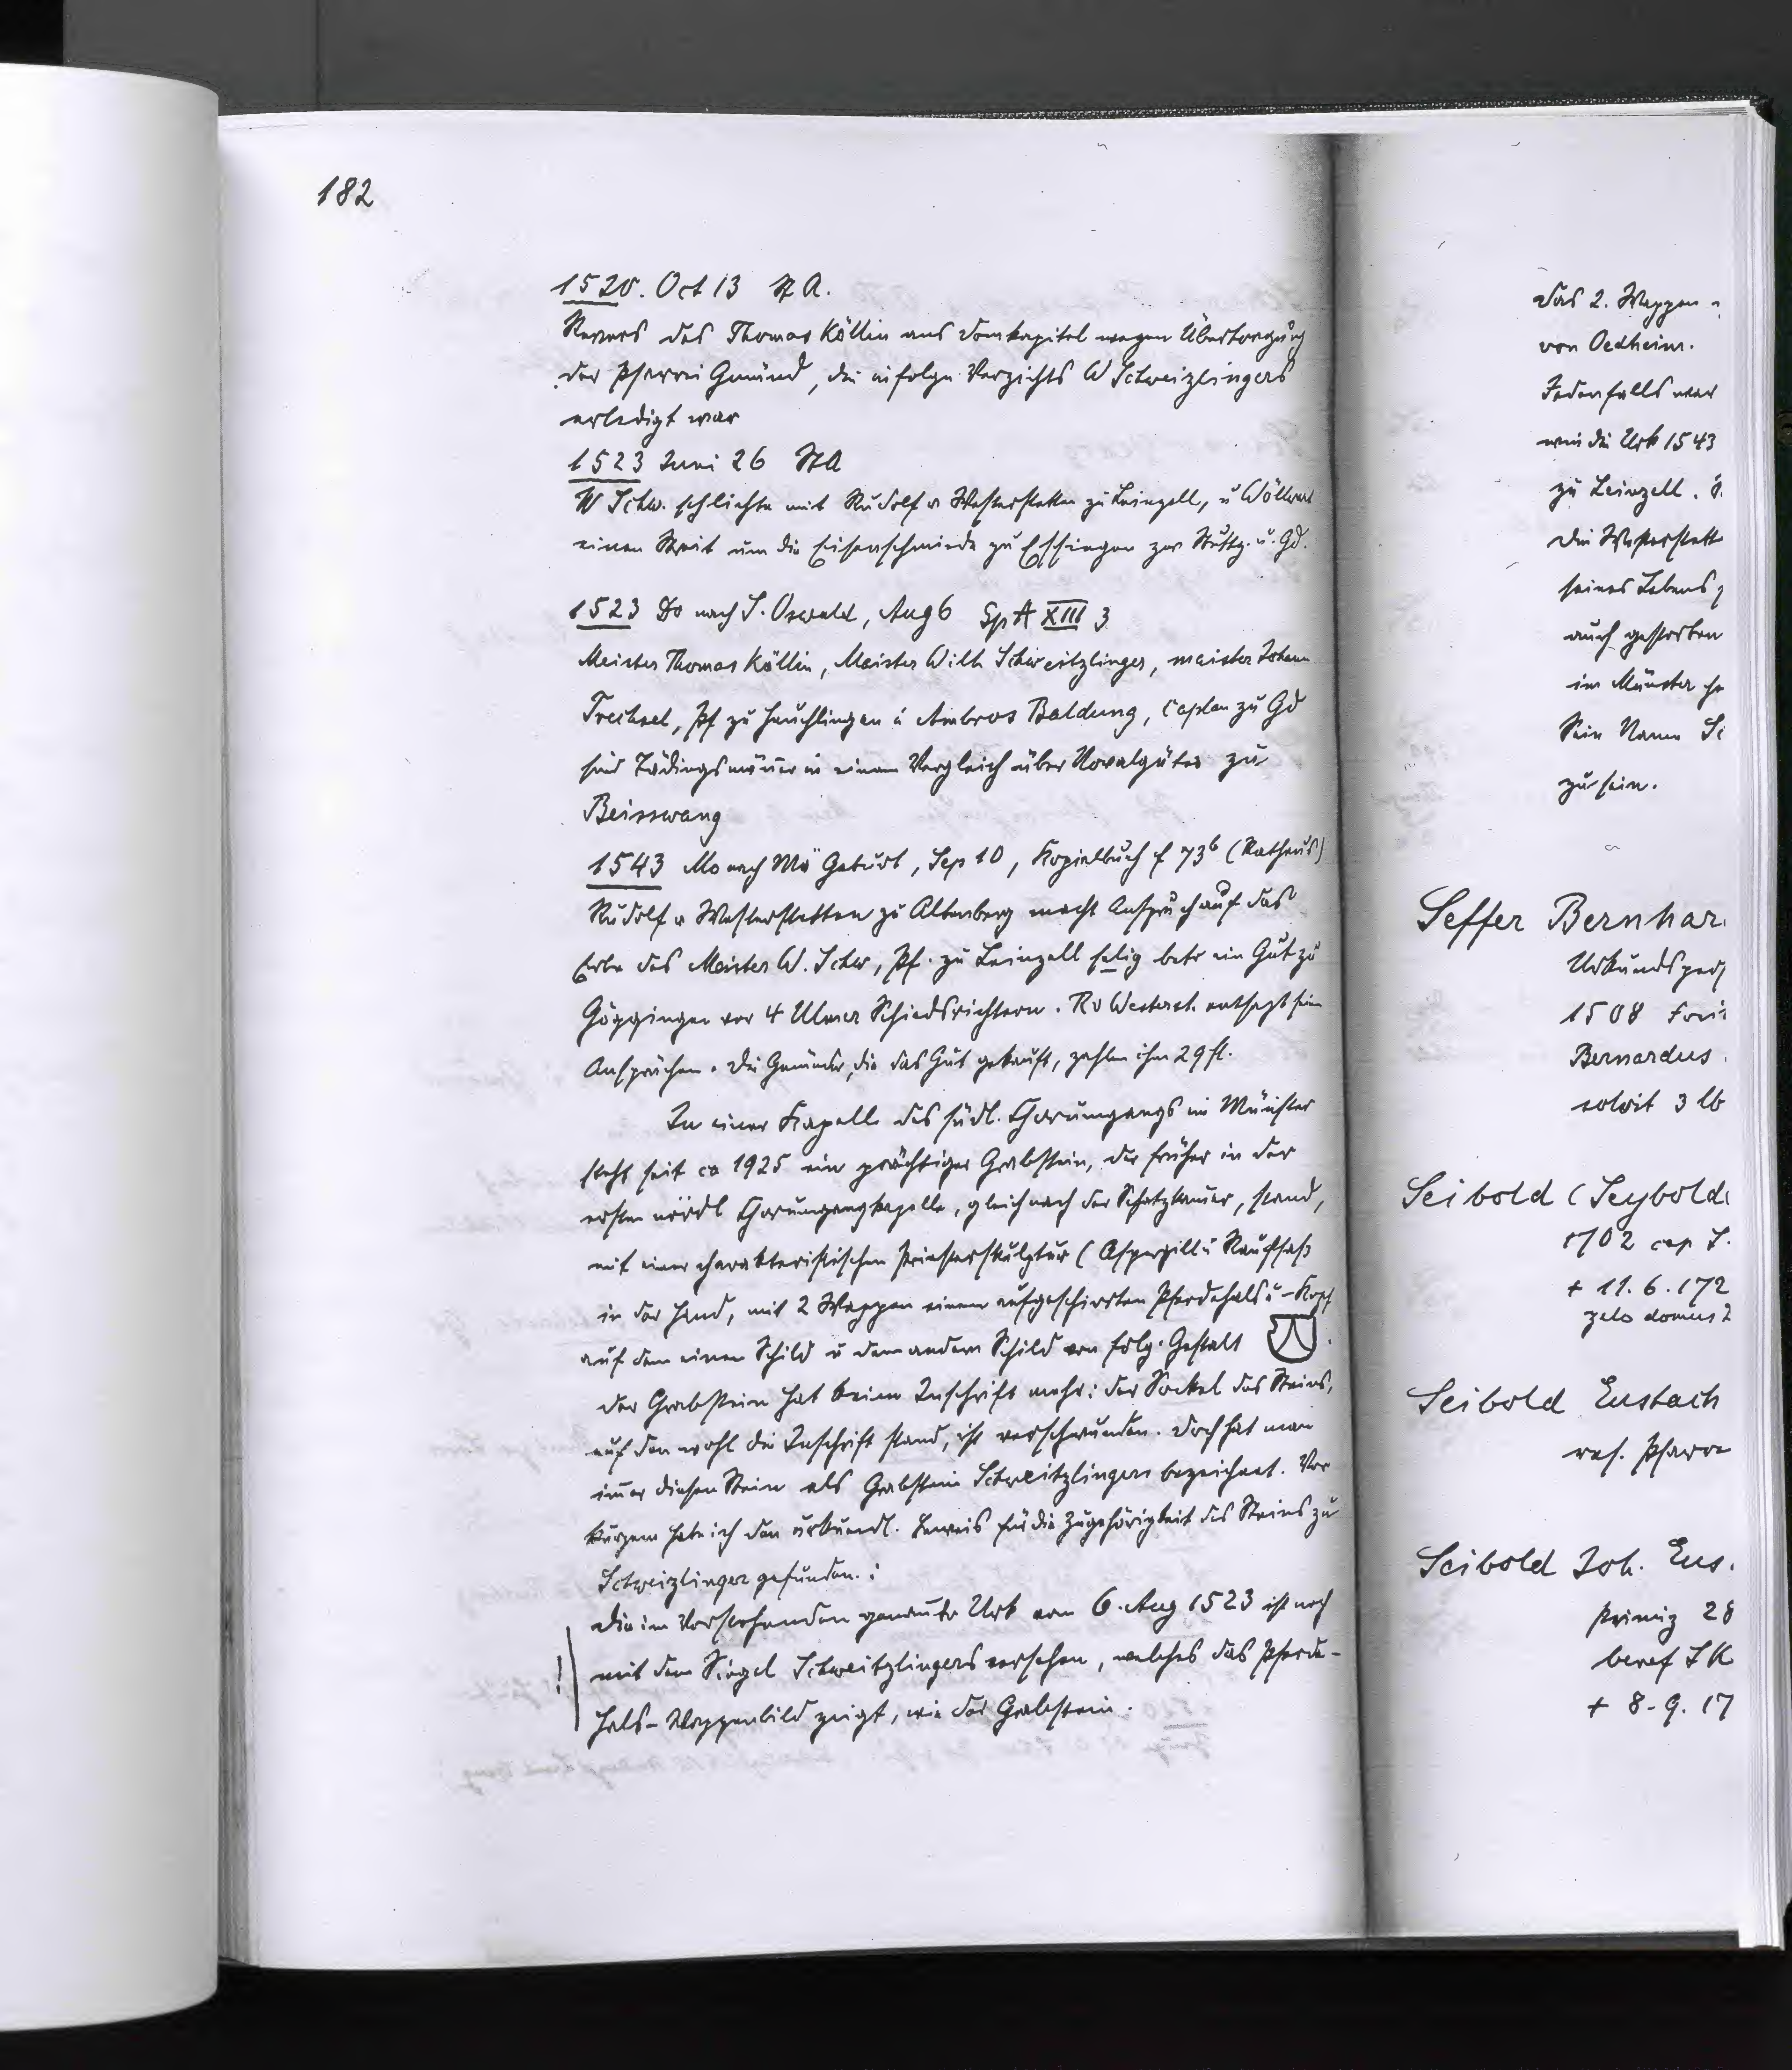 182
1520. Oct 13 St A.
Revers des Thomas Köllin ans Domkapitel wegen Übertragung
der Pfarrei Gmünd, die infolge Verzichts W Schweizlingers
erledigt war
1523 Juni 26 StA
W Schw. schlichte mit Rudolf v Westerstetten zu Leinzell, u Wöllwart
einen Streit um die Eisenschmiede zu Essingen zw Stuttg. u. Gd.
1523 Do nach S. Oswald, Aug 6 Sp A XIII 3
Meister Thomas Köllin, Meister Wilh Schweitzlinger, meister Johann
Trechsel, Pf zu Heuchlingen u Ambros Baldung, Caplan zu Gd
sind Tädingsmänner in einem Vergleich über Novalgüter zu
Beisswang
1543 Mo nach Mä Geburt, Sep 10, Kopialbuch f 73b (Rathaus)
Rudolf v Westerstetten zu Altenberg macht Anspruch auf das
Erbe des Meister W. Schw, Pf. zu Leinzell selig betr ein Gut zu
Göggingen vor 4 Ulmer Schiedsrichtern. R v Westerst. entsagt sein
Ansprüchen. Die Gmünder, die das Gut gekauft, zahlen ihm 29 fl.
In einer Kapelle des südl. Chorumgangs im Münster
steht seit ca 1925 ein prächtiger Grabstein, der früher in der
ersten nördl Chorumgangkapelle, gleich nach der Schatzkammer, stand,
mit einer charakteristischen Priesterskulptur (Aspergill u Rauchfaß
in der Hand, mit 2 Wappen einem aufgeschirrten Pferdehals u -Kopf
auf dem einen Schild u dem andern Schild von folg. Gestalt .
Der Grabstein hat keine Inschrift mehr: der Sockel des Steins,
auf dem wohl die Inschrift stand, ist verschwunden. Doch hat man
immer diesen Stein als Grabstein Schweitzlingers bezeichnet. Vor
kurzem habe ich den urkundl. Beweis für die Zugehörigkeit des Steins zu
Schweizlinger gefunden.:
Die im Vorstehenden genannte Urk vom 6. Aug 1523 ist noch
! mit dem Siegel Schweitzlingers versehen, welches das Pferde-
hals-Wappenbild zeigt, wie der Grabstein.
Das 2. Wappen
von Oedheim.
Jedenfalls war
wie die Urk 1543
zu Leinzell.
Die Westerstett
seines Lebens
auch gestorben
im Münster
Sein Name
zu sein.
Seffer Bernhar
Urkundsper
1508
Bernardus
solvit 3 lb
Seibold (Seybold
1702 cap S.
+ 11. 6. 172
zelo domus
Seibold Eustach
res. Pfarre
Seibold Joh. Eus.
Primiz 28
benef S K
+ 8. 9. 17